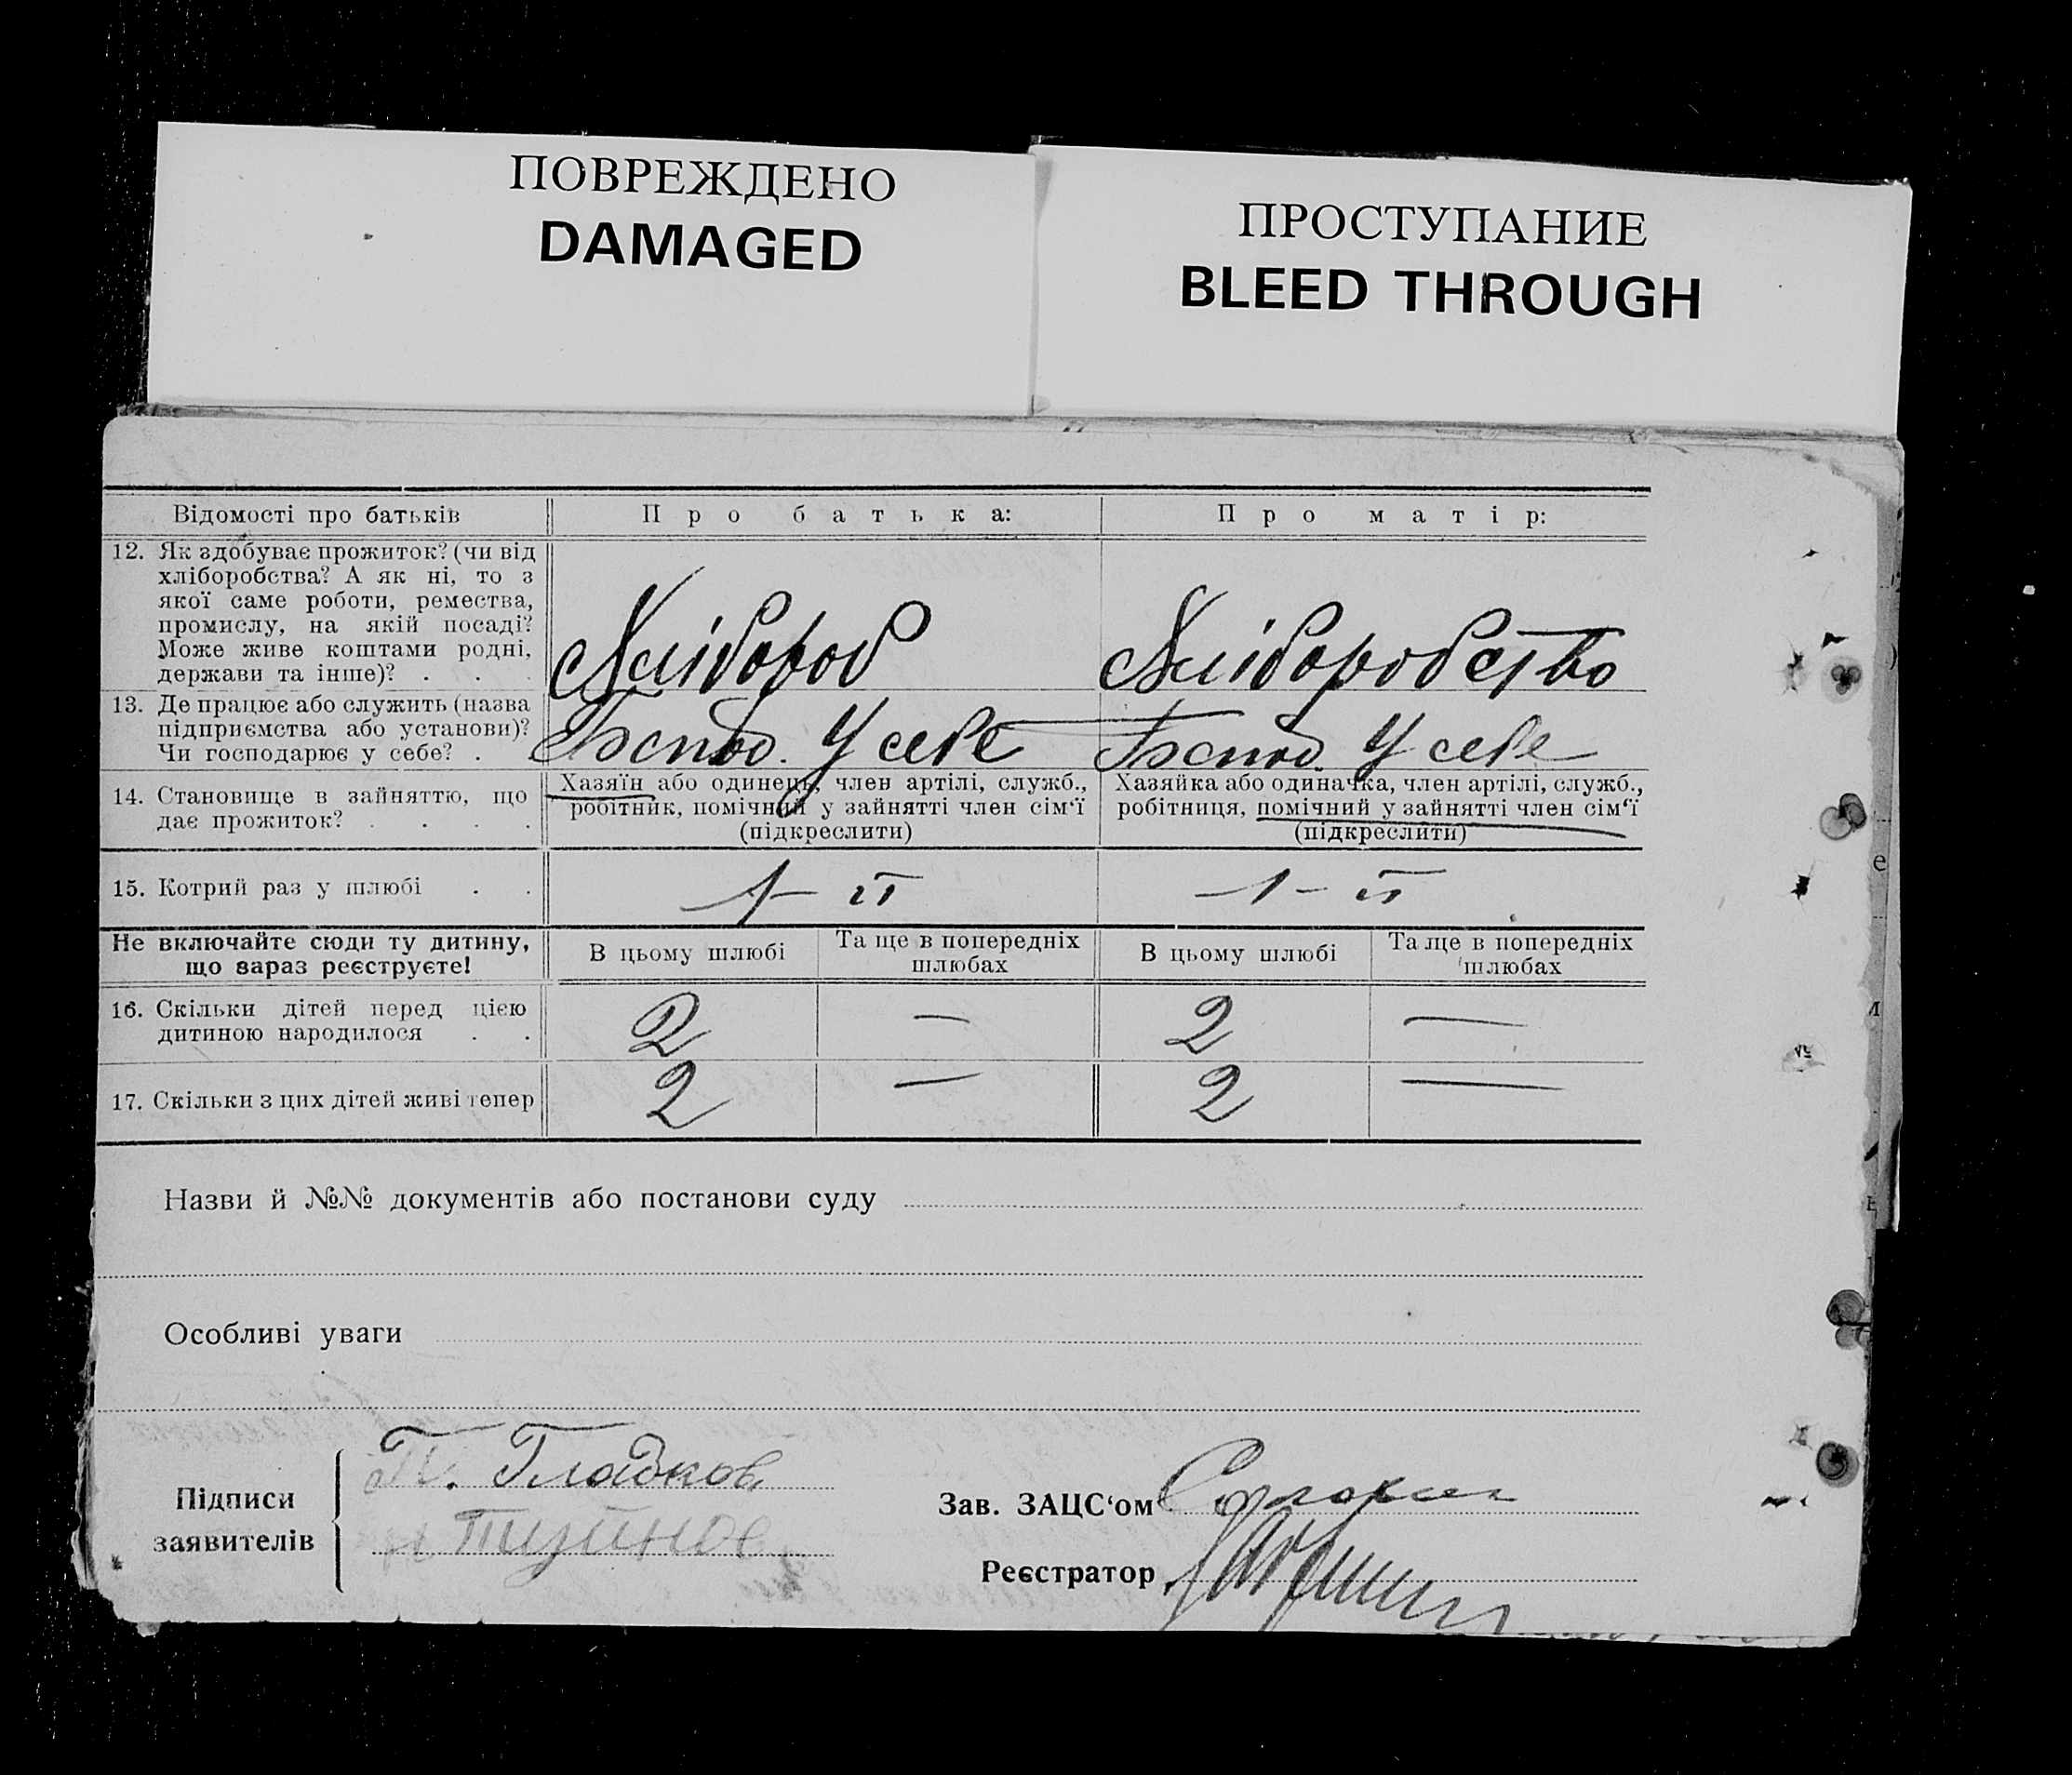 ПОВРЕЖДЕНО
DAMAGED
ПРОСТУПАНИЕ
BLEED THROUGH
Відомості про батьків
Про батька:
Про матір:
12. Як здобуває прожиток? (чи від
хліборобства? А як ні, то з
якої саме роботи, ремества,
промислу, на якій посаді?
Може живе коштами родні,
держави та інше)? . . .
Хлібороб
Хліборобство
13. Де працює або служить (назва
підприємства або установи)?
Чи господарює у себе? .
Господ. У себе
Господ. У себе
14. Становище в зайняттю, що
дає прожиток? . . . .
Хазяїн або одинець, член артілі, служб.,
робітник, помічний у зайнятті член сім‘ї
(підкреслити)
Хазяйка або одиначка, член артілі, служб.,
робітниця, помічний у зайнятті член сім‘ї
(підкреслити)
15. Котрий раз у шлюбі . .
1-й
1-й
Не включайте сюди ту дитину,
що зараз реєструєте!
В цьому шлюбі
Та ще в попередніх
шлюбах
В цьому шлюбі
Та ще в попередніх
шлюбах
16. Скільки дітей перед цією
дитиною народилося . .
2
—
2
—
17. Скільки з цих дітей живі тепер
2
—
2
—
Назви й №№ документів або постанови суду
Особливі уваги
Підписи
заявителів
Гладков
Зав. ЗАЦС‘ом
Реєстратор